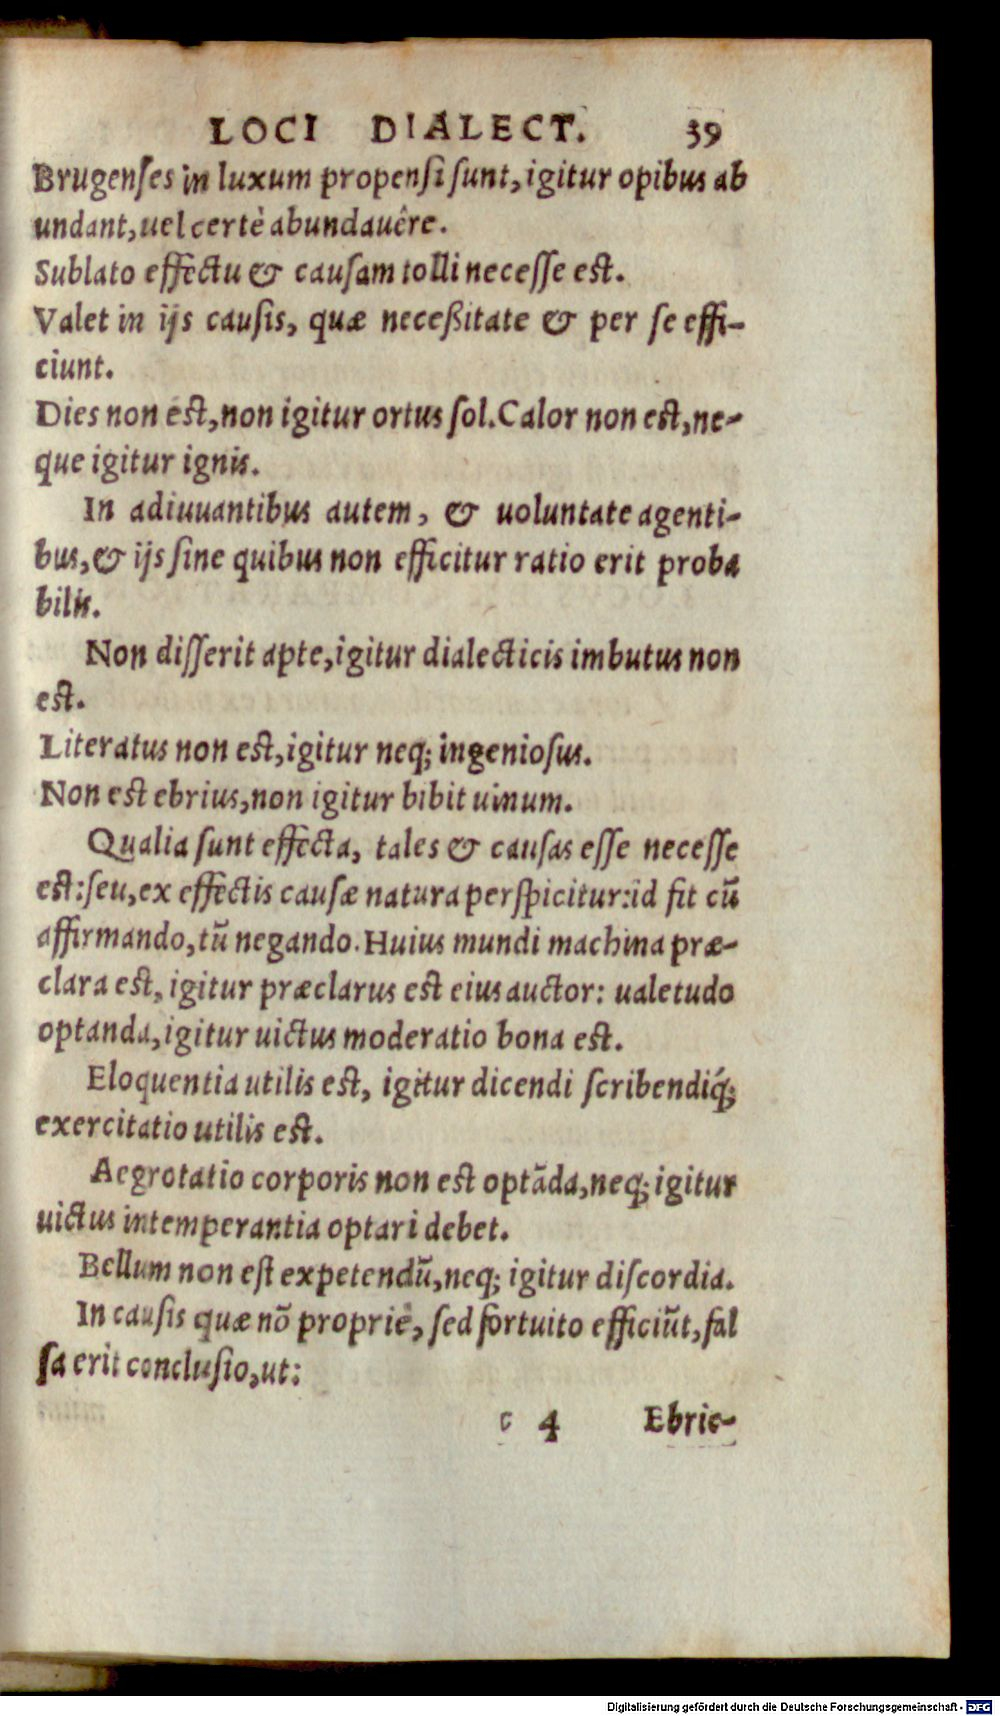 LOCI DIALECT. 39
Brugenſes in luxum propenſi ſunt, igitur opibus ab
undant, uel certè abundauêre.
Sublato effectu & cauſam tolli neceſſe eſt.
Valet in ijs cauſis, quæ neceßitate & per ſe effi-
ciunt.
Dies non eſt, non igitur ortus ſol. Calor non eſt, ne-
que igitur ignis.
In adiuuantibus autem, & uoluntate agenti-
bus, & ijs ſine quibus non efficitur ratio erit proba
bilis.
Non diſſerit apte, igitur dialecticis imbutus non
eſt.
Literatus non eſt, igitur neq; ingenioſus.
Non eſt ebrius, non igitur bibit uinum.
Qualia ſunt effecta, tales & cauſas eſſe neceſſe
eſt: ſeu, ex effectis cauſæ natura perſpicitur: id fit cũ
affirmando, tũ negando. Huius mundi machina præ-
clara eſt, igitur præclarus eſt eius auctor: ualetudo
optanda, igitur uictus moderatio bona eſt.
Eloquentia utilis eſt, igitur dicendi ſcribendiq́;
exercitatio utilis eſt.
Aegrotatio corporis non eſt optãda, neq; igitur
uictus intemperantia optari debet.
Bellum non eſt expetendũ, neq; igitur diſcordia.
In cauſis quæ nõ propriè, ſed fortuito efficiũt, fal
ſa erit concluſio, ut:
c 4 Ebrie-
Digitalisierung gefördert durch die Deutsche Forschungsgemeinschaft - DFG